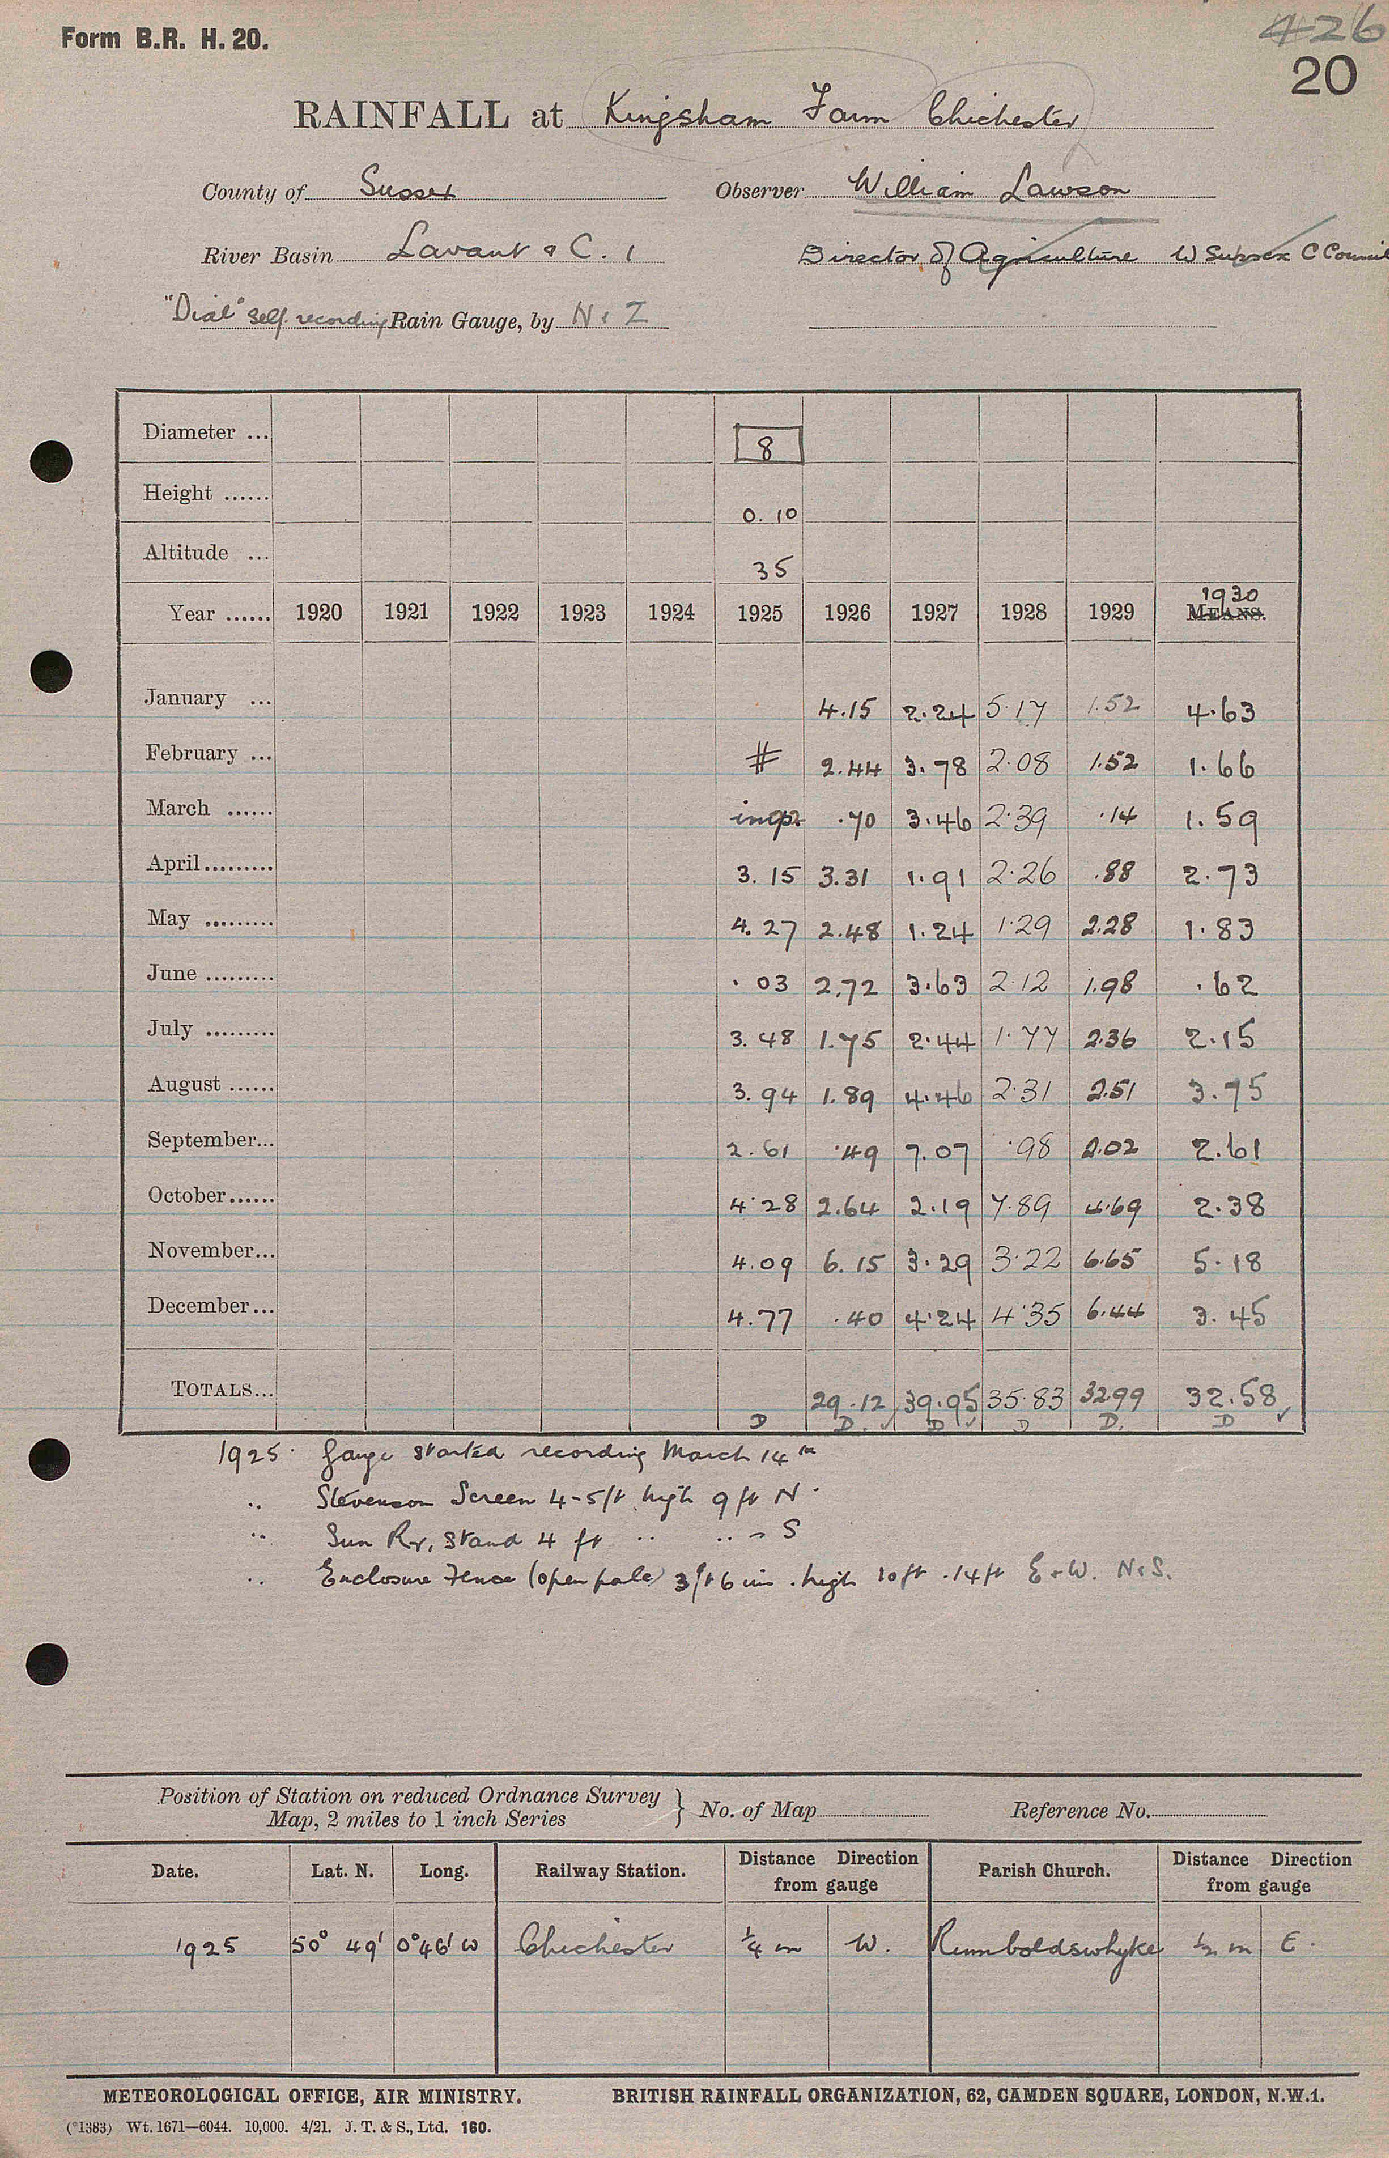 Form B.R. H. 20.
426
20
RAINFALL at Kingsham Farm Chichester
County of Sussex Observer William Lawson
River Basin Lavant & C. 1 Director of Agriculture W Sussex C Council
"Dial" self recording Rain Gauge, by N & Z
Diameter ... 8
Height ...... 0.10
Altitude ... 35
Year ...... 1920 1921 1922 1923 1924 1925 1926 1927 1928 1929 1930 MEANS.
January ... 4.15 2.24 5.17 1.52 4.63
February ... # 2.44 3.78 2.08 1.52 1.66
March ...... .70 3.46 2.39 .14 1.59
April ......... 3.15 3.31 1.91 2.26 .88 2.73
May ......... 4.27 2.48 1.24 1.29 2.28 1.83
June ......... .03 2.72 3.63 2.12 1.98 .62
July ......... 3.48 1.75 2.44 1.77 2.36 2.15
August ...... 3.94 1.89 4.46 2.31 2.51 3.75
September... 2.61 .49 7.07 .98 2.02 2.61
October...... 4.28 2.64 2.19 7.89 4.69 2.38
November... 4.09 6.15 3.29 3.22 6.65 5.18
December... 4.77 .40 4.24 4.35 6.44 3.45
TOTALS... 29.12 39.95 35.83 32.99 32.58
D D D D D. D
1925. Gauge started recording March 14th
.. Stevenson Screen 4-5ft high 9 ft N.
.. Sun Rr, Stand 4 ft .. .. - S
.. Enclosure Fence (open pale) 3ft 6 ins. high 10ft . 14ft E & W. N & S.
Position of Station on reduced Ordnance Survey
Map, 2 miles to 1 inch Series } No. of Map Reference No.
Date. Lat. N. Long. Railway Station. Distance Direction from gauge Parish Church. Distance Direction from gauge
1925 50° 49' 0°46' W Chichester ¼ m W. Rumboldswhyke ½ m E.
METEOROLOGICAL OFFICE, AIR MINISTRY. BRITISH RAINFALL ORGANIZATION, 62, CAMDEN SQUARE, LONDON, N.W.1.
(*1383) Wt. 1671—6044. 10,000. 4/21. J. T. & S., Ltd. 160.